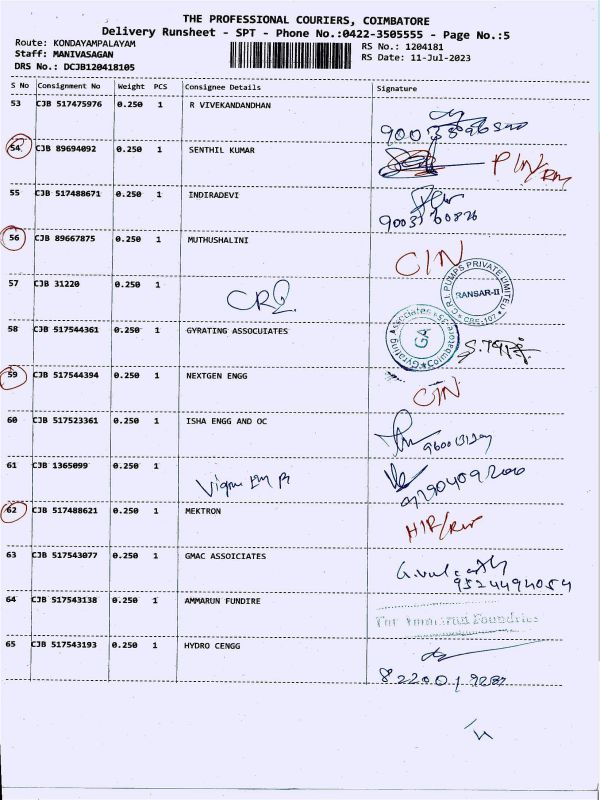 THE PROFESSIONAL COURIERS, COIMBATORE
Delivery Runsheet - SPT - Phone No.:0422-3505555 - Page No.:5
Route: KONDAYAMPALAYAM RS No.: 1204181
Staff: MANIVASAGAN RS Date: 11-Jul-2023
DRS No.: DCJB120418105
S No Consignment No Weight PCS Consignee Details Signature
53 CJB 517475976 0.250 1 R VIVEKANDANDHAN
54 CJB 89694092 0.250 1 SENTHIL KUMAR
55 CJB 517488671 0.250 1 INDIRADEVI
56 CJB 89667875 0.250 1 MUTHUSHALINI
CIN
57 CJB 31220 0.250 1
C.R.I. PUMPS PRIVATE LIMITED
RANSAR-II
CBE-107
58 CJB 517544361 0.250 1 GYRATING ASSOCUIATES
Gyrating Associates
GA
Coimbatore
59 CJB 517544394 0.250 1 NEXTGEN ENGG
CIN
60 CJB 517523361 0.250 1 ISHA ENGG AND OC
61 CJB 1365099 0.250 1
62 CJB 517488621 0.250 1 MEKTRON
63 CJB 517543077 0.250 1 GMAC ASSOICIATES
9524494054
64 CJB 517543138 0.250 1 AMMARUN FUNDIRE
For Ammarun Foundries
65 CJB 517543193 0.250 1 HYDRO CENGG